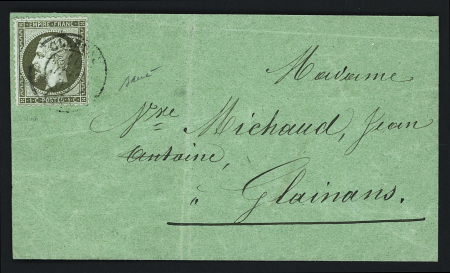 EMPIRE FRANC
1 C POSTES 1 C
Madame
Vve Michaud, Jean
Antoine,
à Glainans.